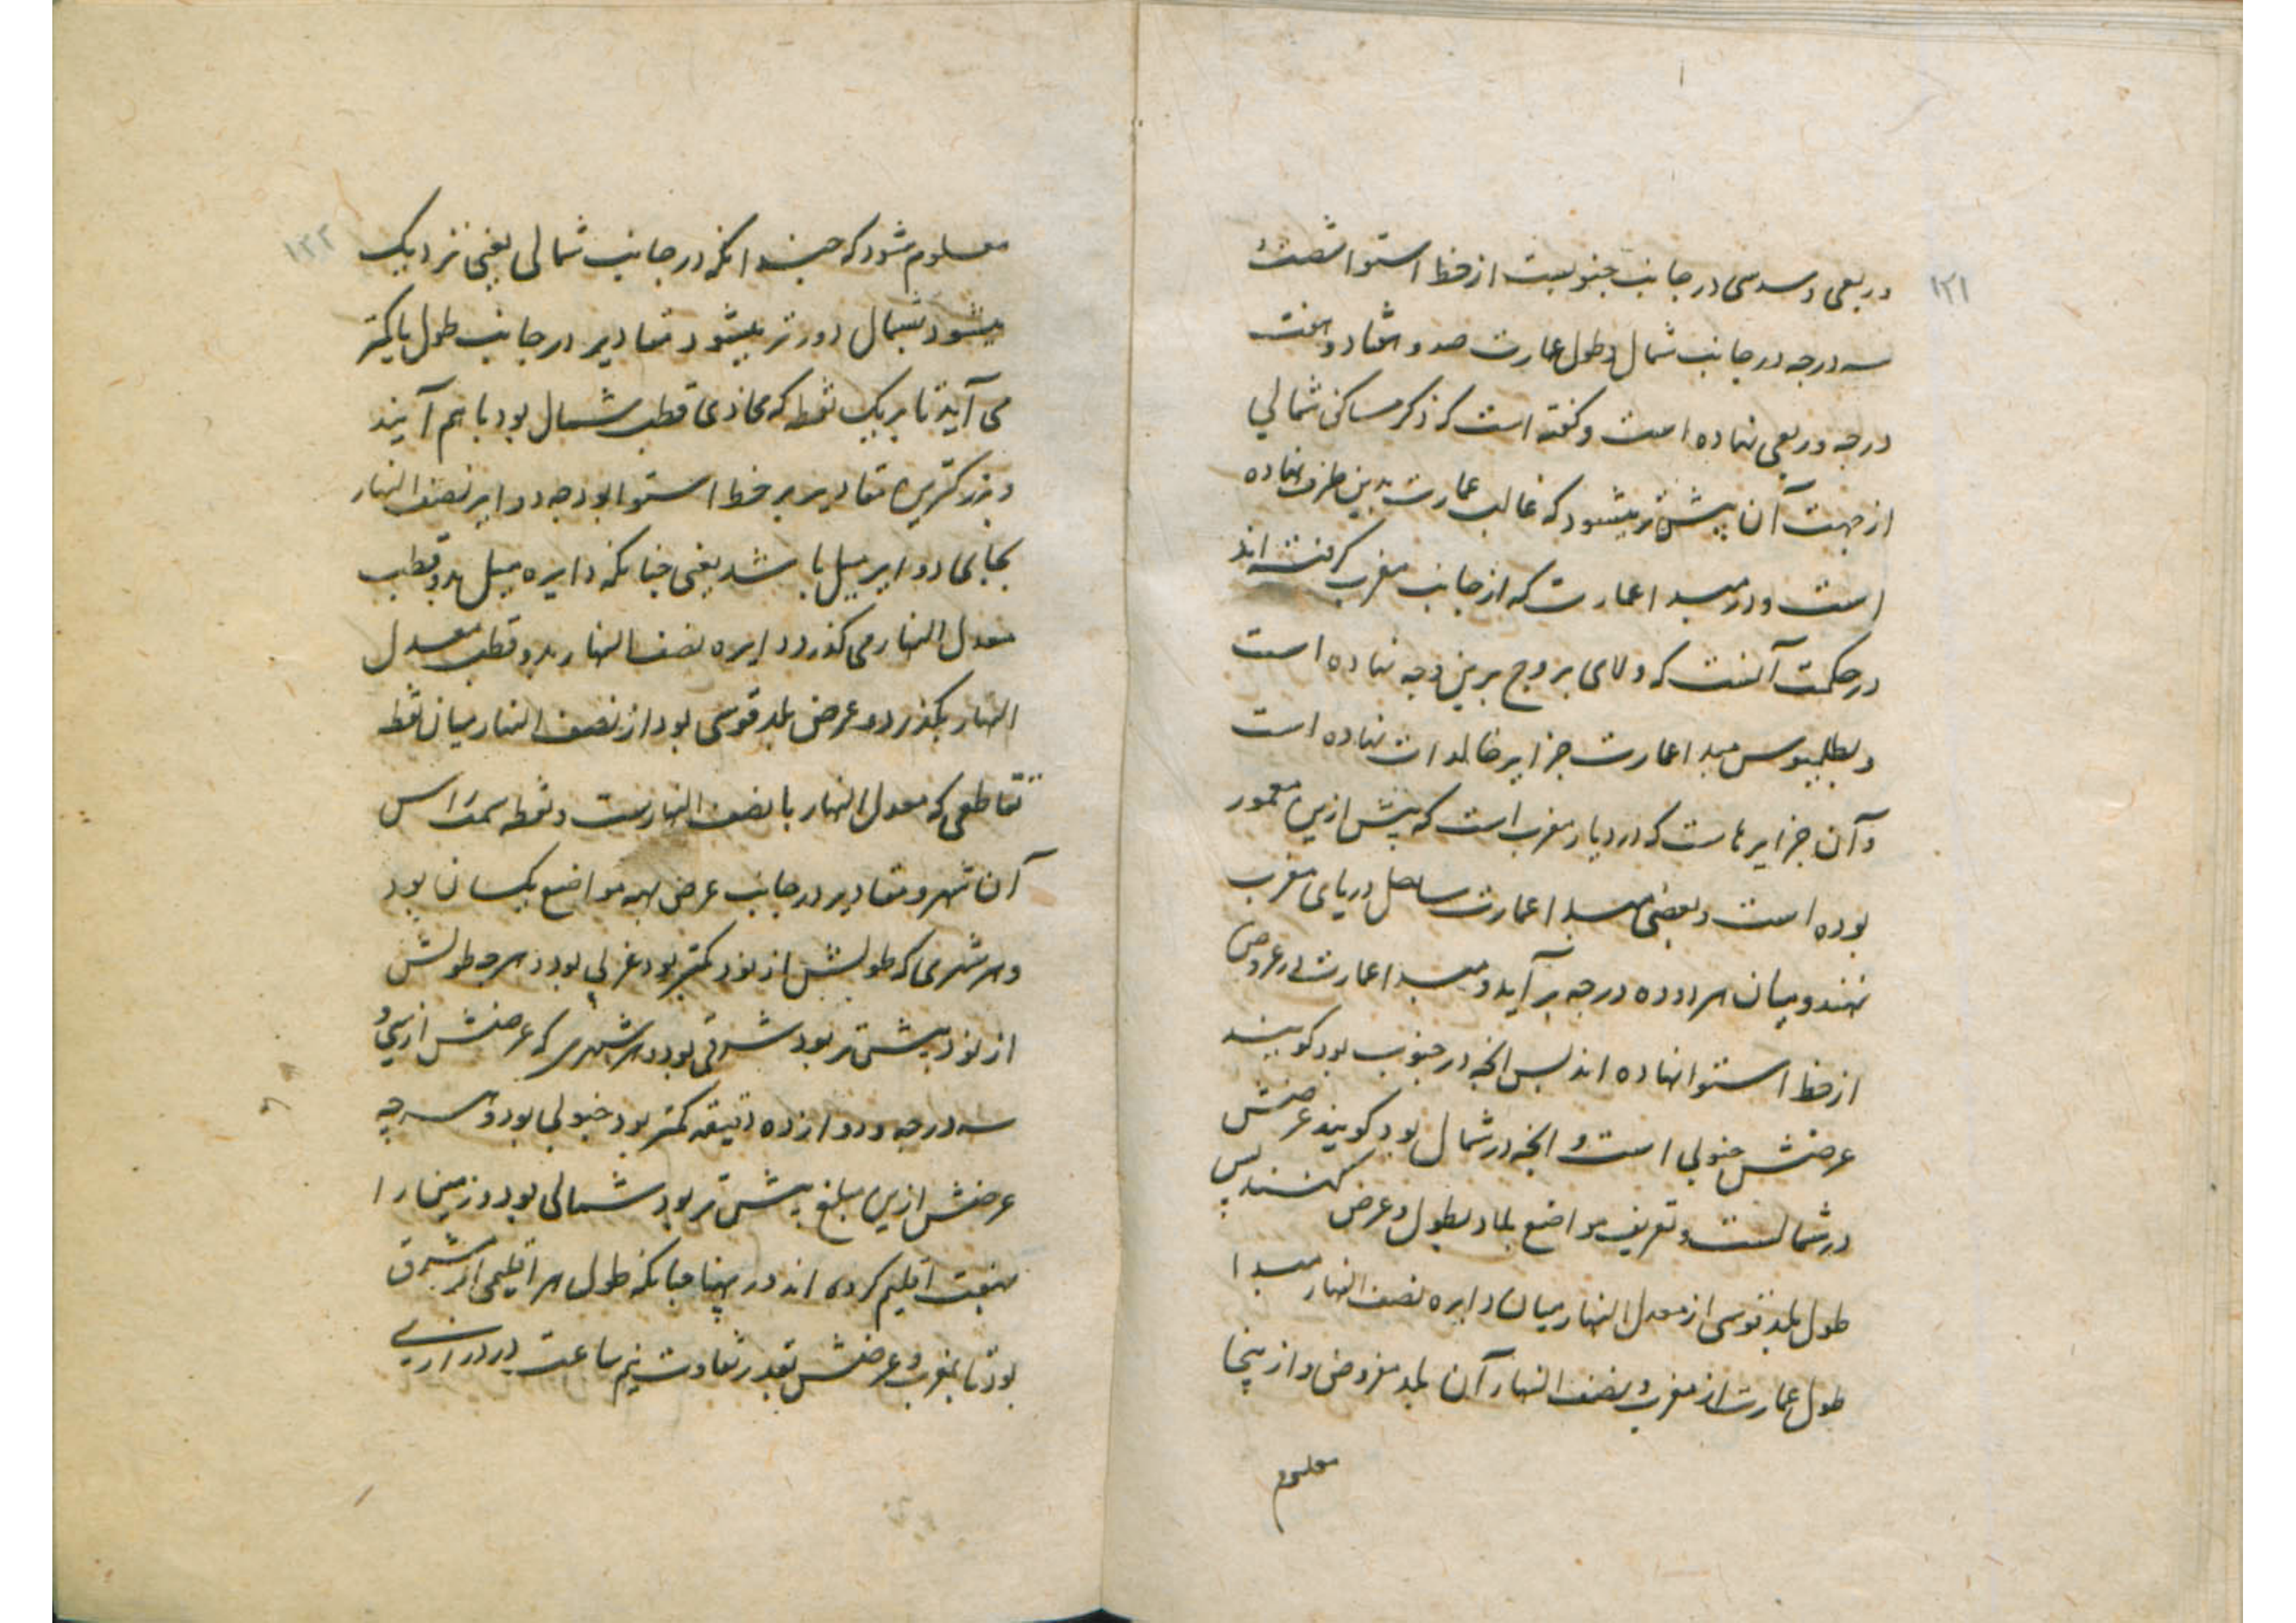 ۱۲۱
و ربعی و سدسی در جانب جنوبیست از خط استوا شصت و
سه درجه در جانب شمال و طول عمارت صد و هفتاد و هفت
درجه و ربعی نهاده است و گفته است که ذکر مساکن شمالی
از جهت آن پیشتر میشود که غالب عمارت بدین طرف افتاده
است و در مبدا عمارت که از جانب مغرب گرفته اند
در حکمت آنست که ولای بروج برین وجه نهاده است
و بطلمیوس مبدا عمارت جزایر خالدات نهاده است
و آن جزایرهاست که در دیار مغرب است که پیش ازین معمور
بوده است و بعضی مبدا عمارت ساحل دریای مغرب
نهند و میان هر دو ده درجه برآید و مبدا عمارت در عروض
از خط استوا نهاده اند پس انچه در جنوب بود گویند
عرضش جنوبی است و انچه در شمال بود گویند عرضش
در شمالست و تعریف مواضع بلاد بطول و عرض کنند پس
طول بلد قوسی از معدل النهار میان دایره نصف النهار مبدا
طول عمارت از مغرب و نصف النهار آن بلد مفروض و از ینجا
معلوم
۱۲۲
معلوم شود که چندانکه در جانب شمالی یعنی نزدیک
میشود بشمال دورتر میشود مقادیر در جانب طول با کمتر
می آید تا بریک نقطه که محاذی قطب شمال بود با هم آیند
و بزرگترین مقادیر بر خط استوا بود چه دوایر نصف النهار
بجای دوایر میل باشد یعنی چنانکه دایره میل بدو قطب
معدل النهار می گذرد دایره نصف النهار بدو قطب معدل
النهار بگذرد و عرض بلد قوسی بود از نصف النهار میان نقطه
تقاطعی که معدل النهار با نصف النهارست و نقطه سمت راس
آن شهر و مقادیر در جانب عرض همه مواضع یکسان بود
و هر شهری که طولش از نود کمتر بود غربی بود و هرچه طولش
از نود بیشتر بود شرقی بود و هر شهری که عرضش از سی و
سه درجه و دوازده دقیقه کمتر بود جنوبی بود و هرچه
عرضش ازین مبلغ بیشتر بود شمالی بود و زمین را
بهفت اقلیم کرده اند در پهنا چنانکه طول هر اقلیمی از مشرق
بود تا بمغرب و عرضش بقدر تفاوت نیم ساعت در درازی